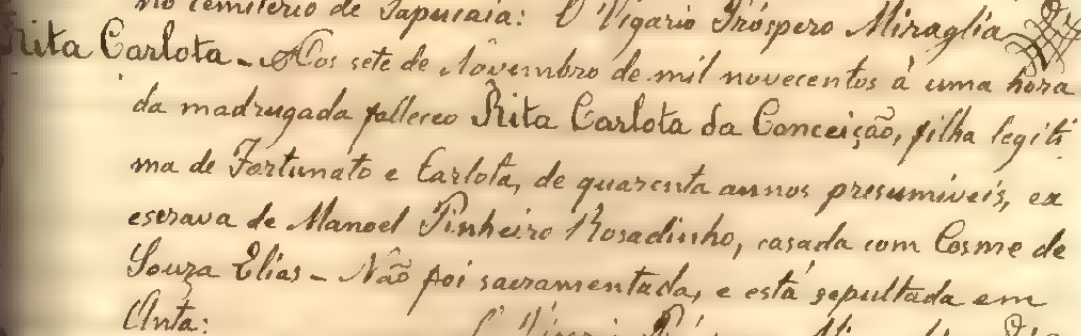 no cemiterio de Sapucaia: O Vigario Próspero Miraglia
Rita Carlota - Aos sete de Novembro de mil novecentos á uma hora
da madrugada falleceo Rita Carlota da Conceição, filha legiti
ma de Fortunato e Carlota, de quarenta annos presumiveis, ex
escrava de Manoel Pinheiro Rosadinho, casada com Cosme de
Souza Elias - Não foi sacramentada, e está sepultada em
Anta: